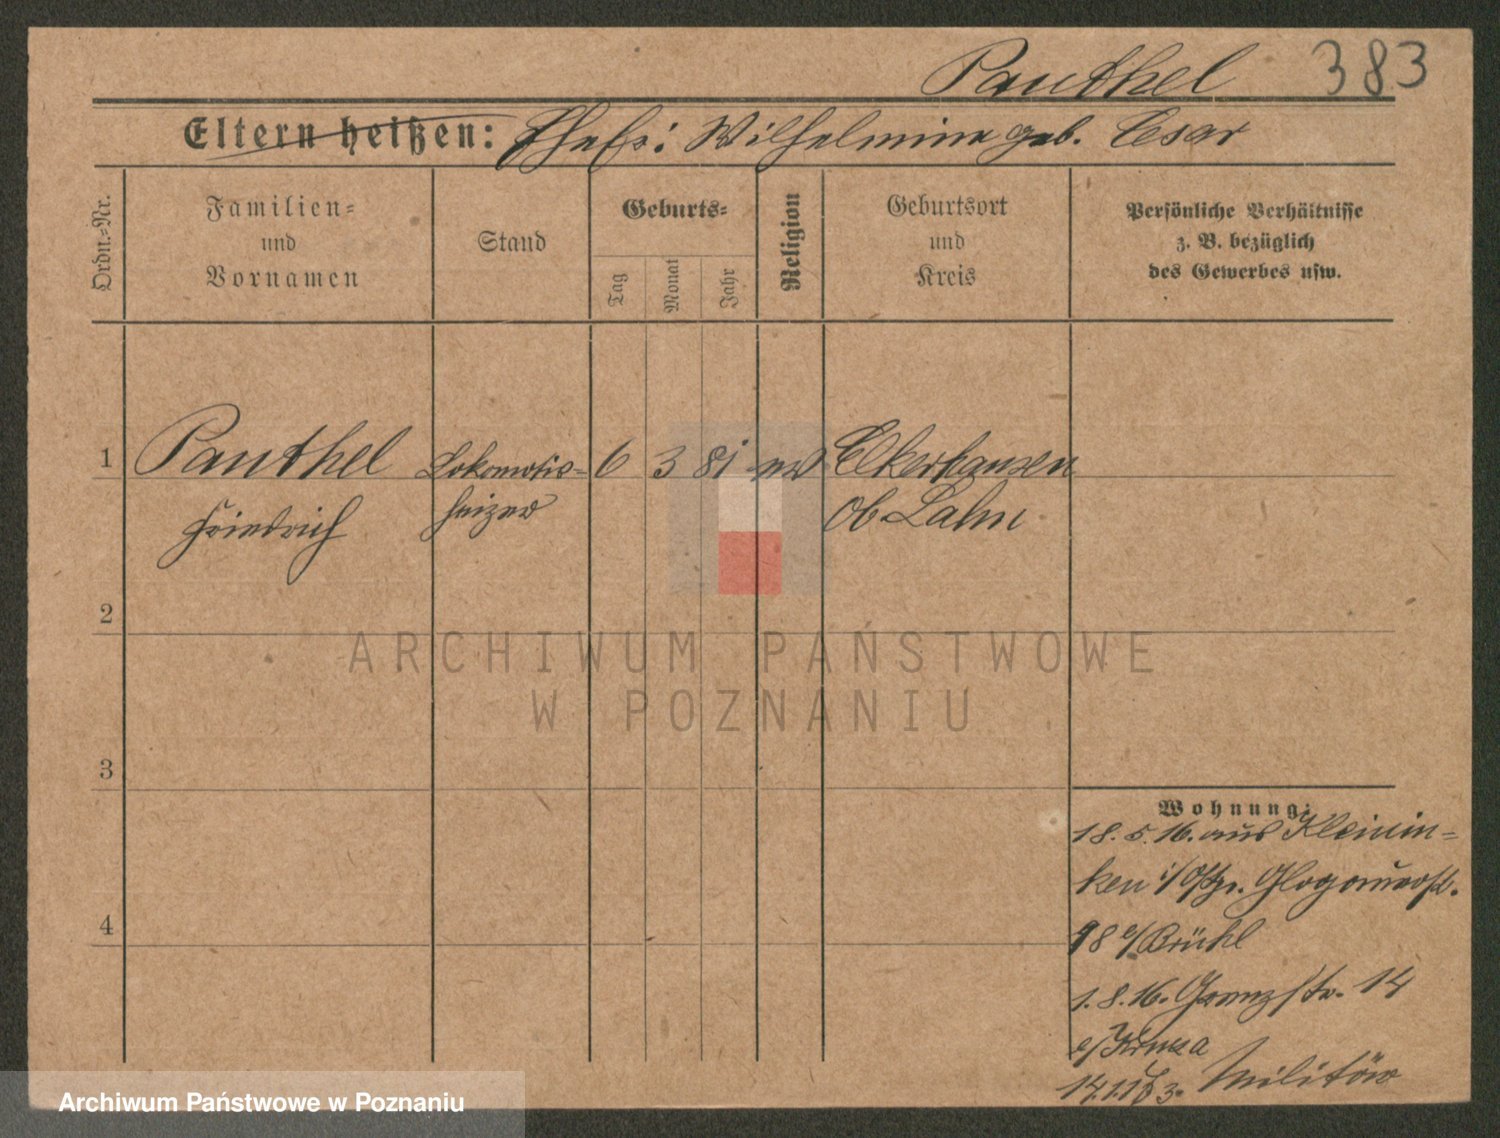 Panthel 383
Eltern heißen: Ehefr: Wilhelmine geb. Cesar
Ordn.-Nr.
Familien-
und
Vornamen
Stand
Geburts-
Tag
Monat
Jahr
Religion
Geburtsort
und
Kreis
Persönliche Verhältnisse
z. B. bezüglich
des Gewerbes usw.
1 Panthel Lokomotiv- 6 3 81 ev Elkerhausen
Friedrich heizer Ob Lahn
2
3
4
Wohnung:
18. 5. 16. aus Kleinin-
ken i/Ostpr. Glogauerstr.
98 b/ Brühl
1. 8. 16. Grenzstr. 14
b/
14.1. Militär
ARCHIWUM PAŃSTWOWE
W POZNANIU
Archiwum Państwowe w Poznaniu